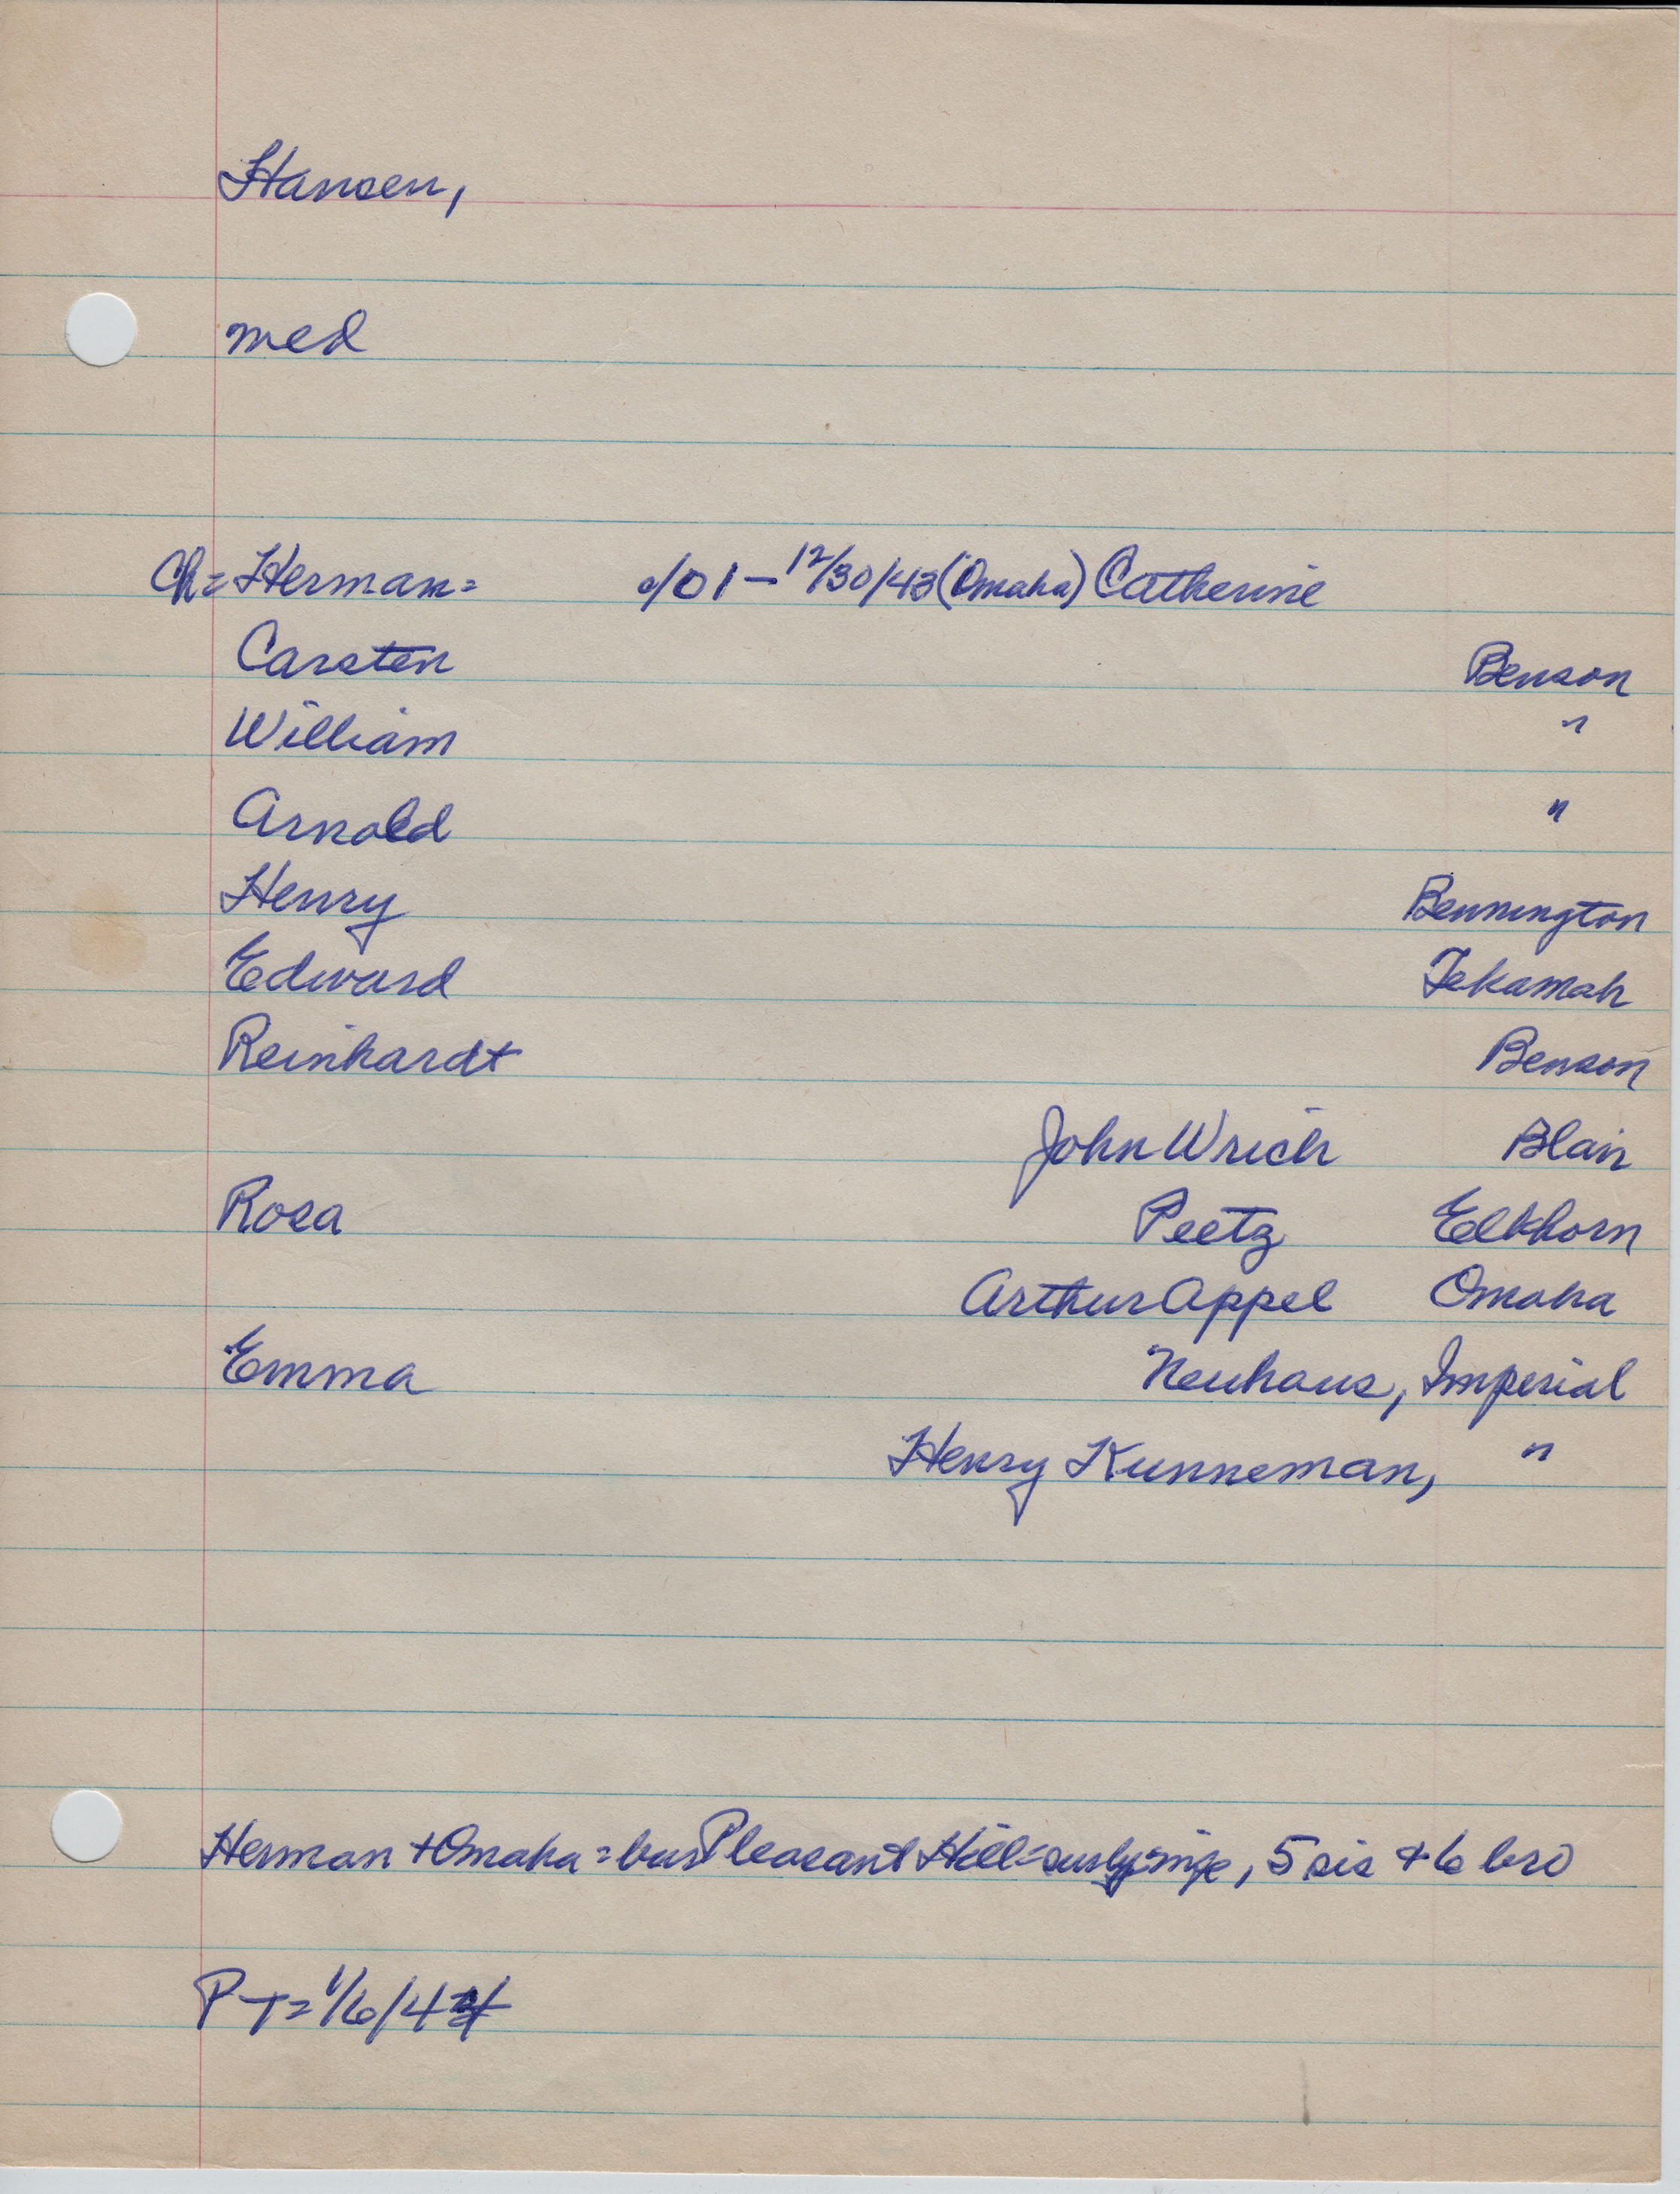 Hansen,
med
Ch= Herman= c/01 - 12/30/43 (Omaha) Catherine
Carsten Benson
William "
Arnold "
Henry Bennington
Edward Tekamah
Reinhardt Benson
John Wrich Blair
Rosa Peetz Elkhorn
Arthur Appel Omaha
Emma Neuhaus, Imperial
Henry Kunneman, "
Herman + Omaha = bur Pleasant Hill = surv by wife, 5 sis + 6 bro
PT= 1/6/44